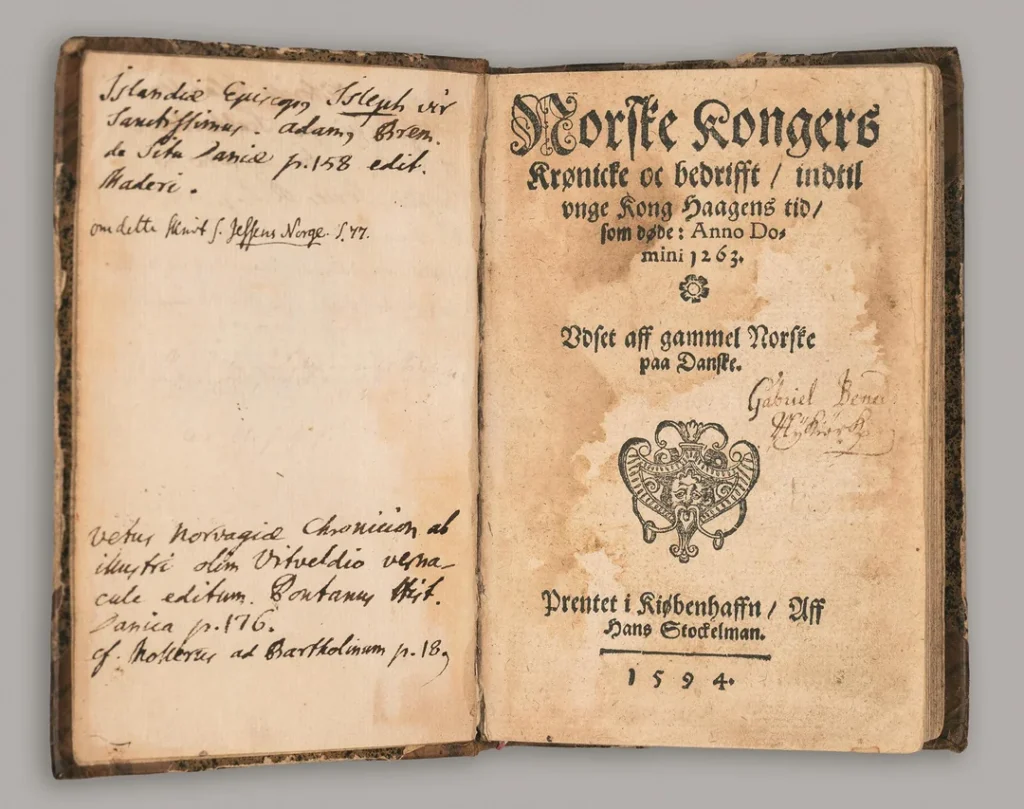 Islandiæ Episcopq Isleph vir
Sanctissimus. Adamq Brem.
de Situ Daniæ p.158 edit.
Maderi.
om dette skrift s. Jessens Norge. S. 77.
vetus Norvagiæ Chronicion ab
illustri olim Vitveldio verna-
cule editum. Pontanus Hist.
Danica p.176.
cf. Mollerus ad Bartholinum p.18,
Norske Kongers
Krønicke oc bedrifft / indtil
vnge Kong Haagens tid/
som døde: Anno Do-
mini 1263.
Vdset aff gammel Norske
paa Danske.
Gabriel
Prentet i Kiøbenhaffn / Aff
Hans Stockelman.
1594.